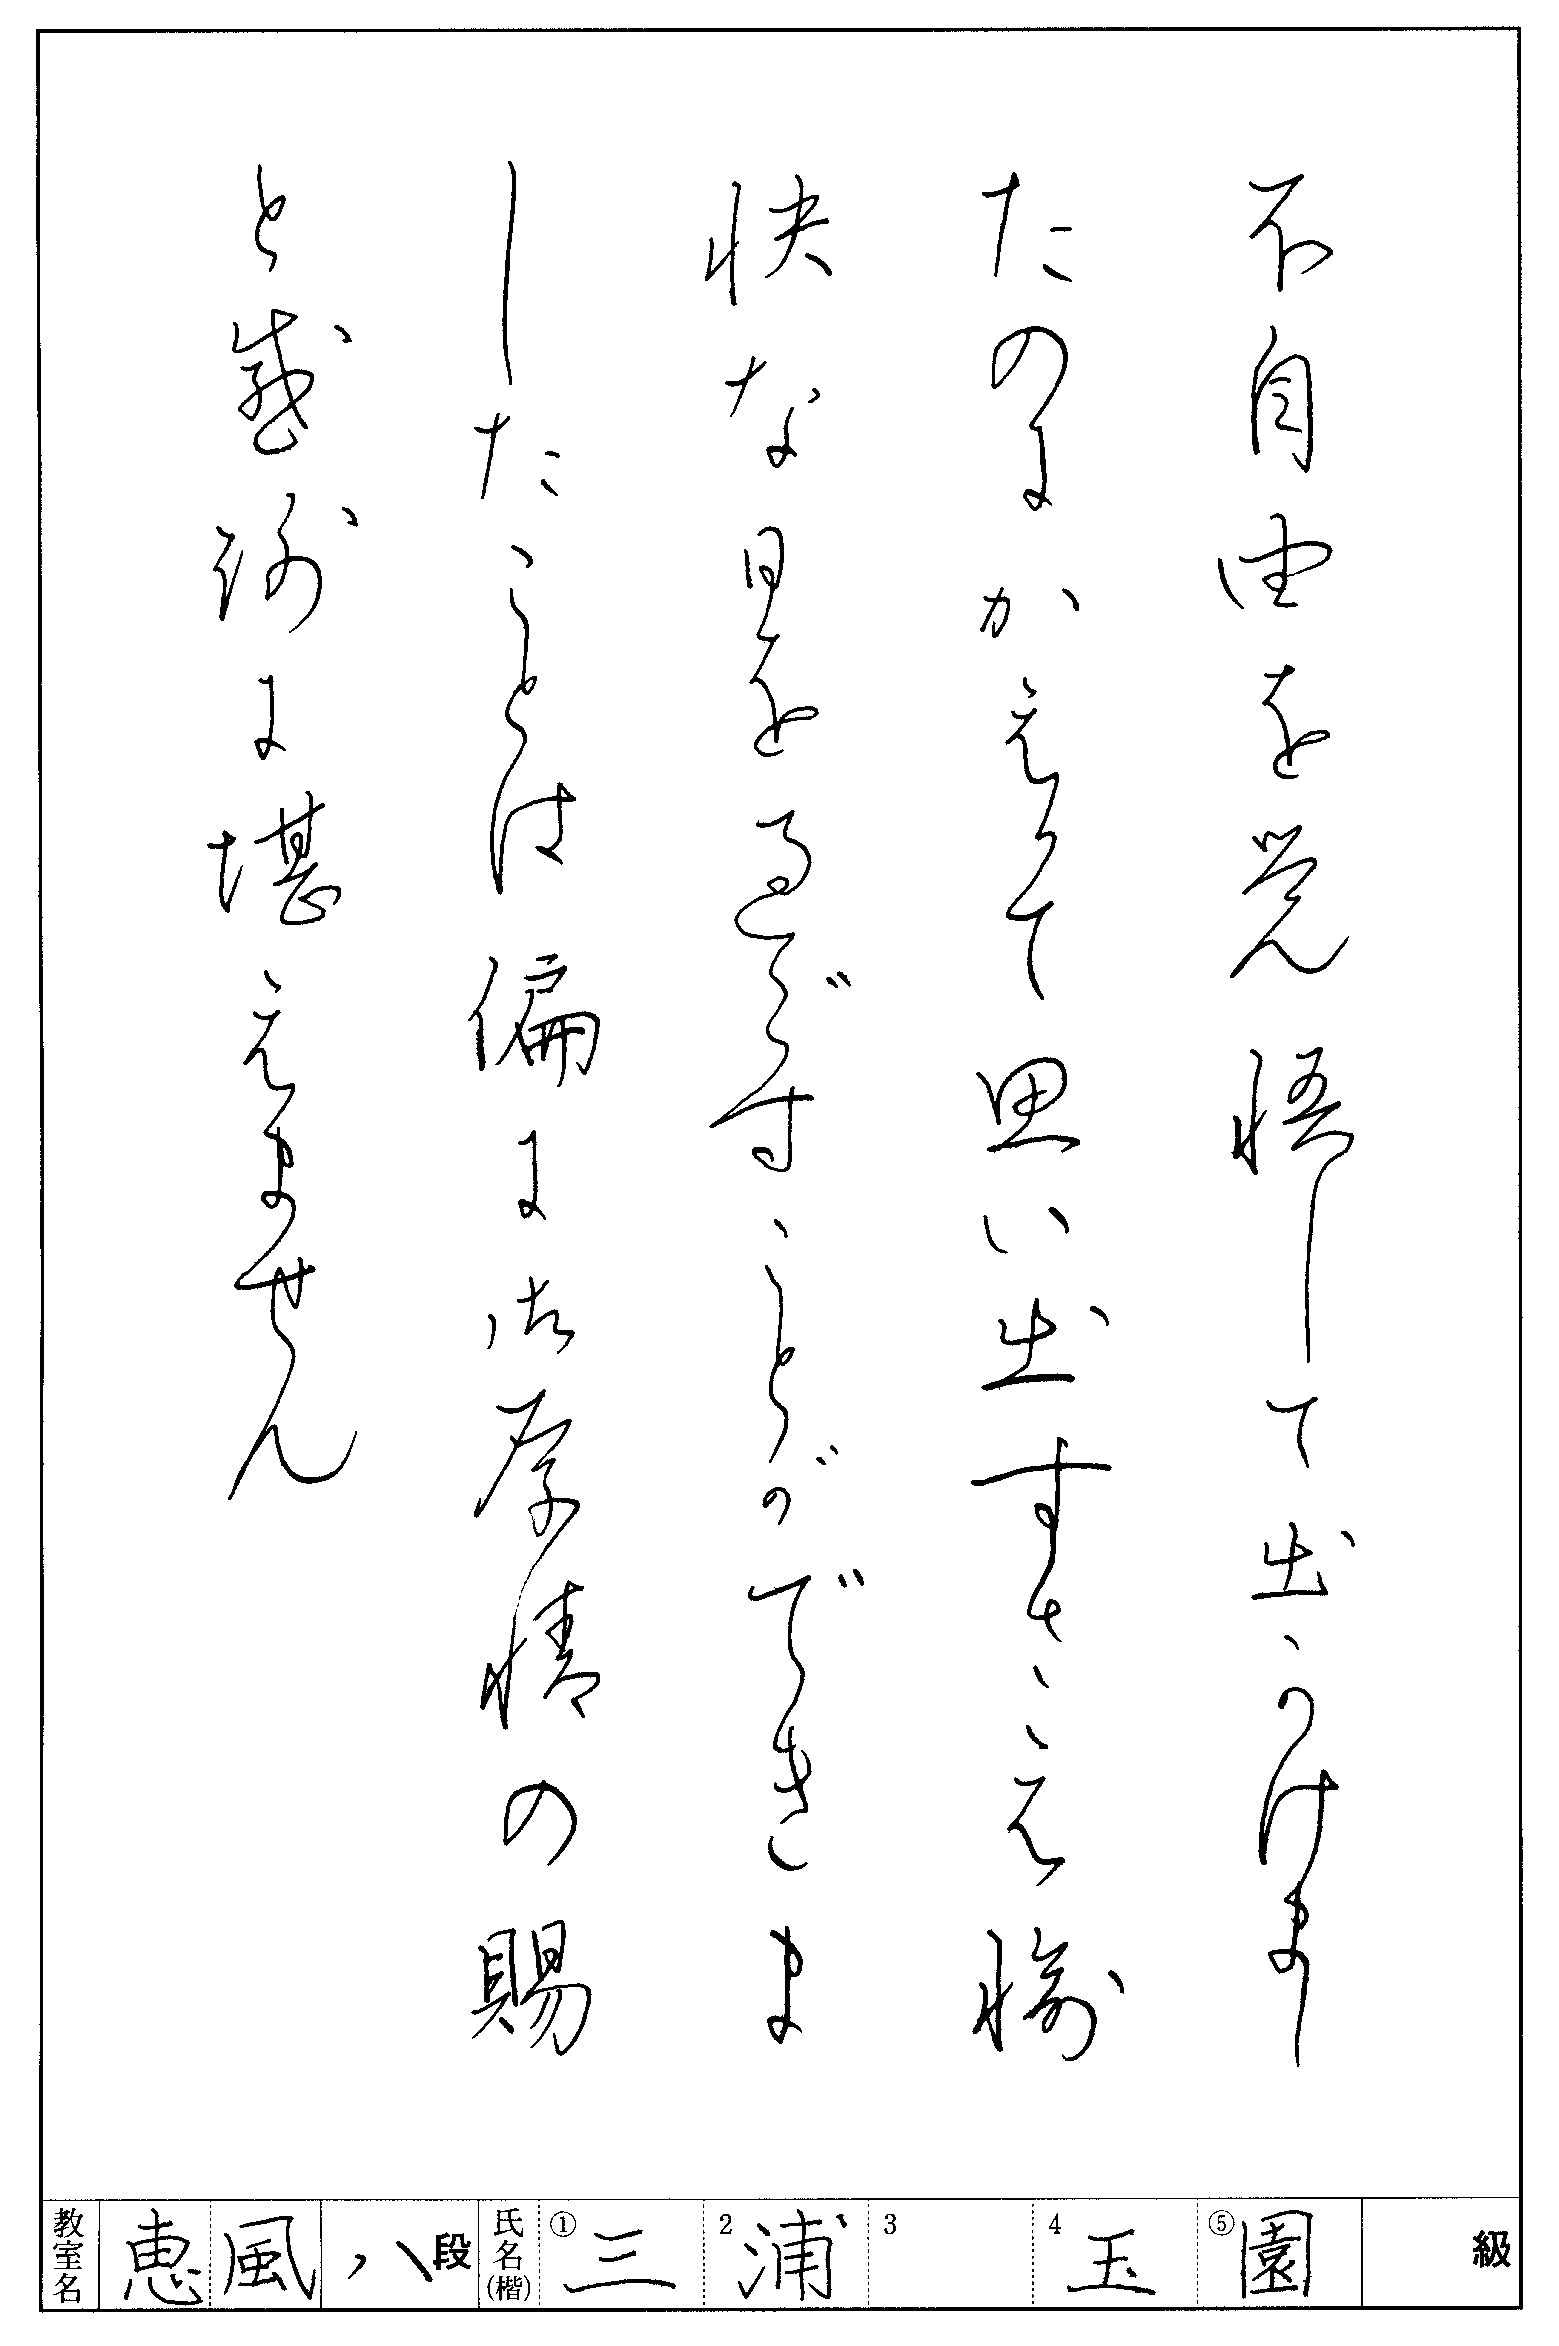 不自由を覚悟して出かけまし
たのにかえって思い出すさえ愉
快な日を過ごすことができま
したことは偏に御厚情の賜
と感謝に堪えません
教室名 恵風 八段 氏名(楷) ①三 2浦 3 4玉 ⑤園 級